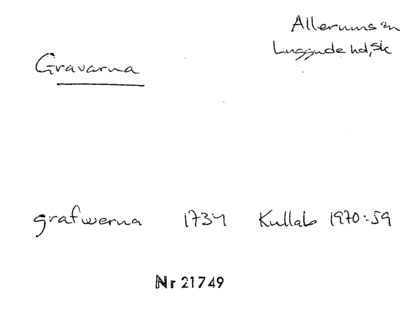 Allerums sn
Luggude hd, Sk
Gravarna
grafwerna 1734 Kullab 1970:59
Nr 21749